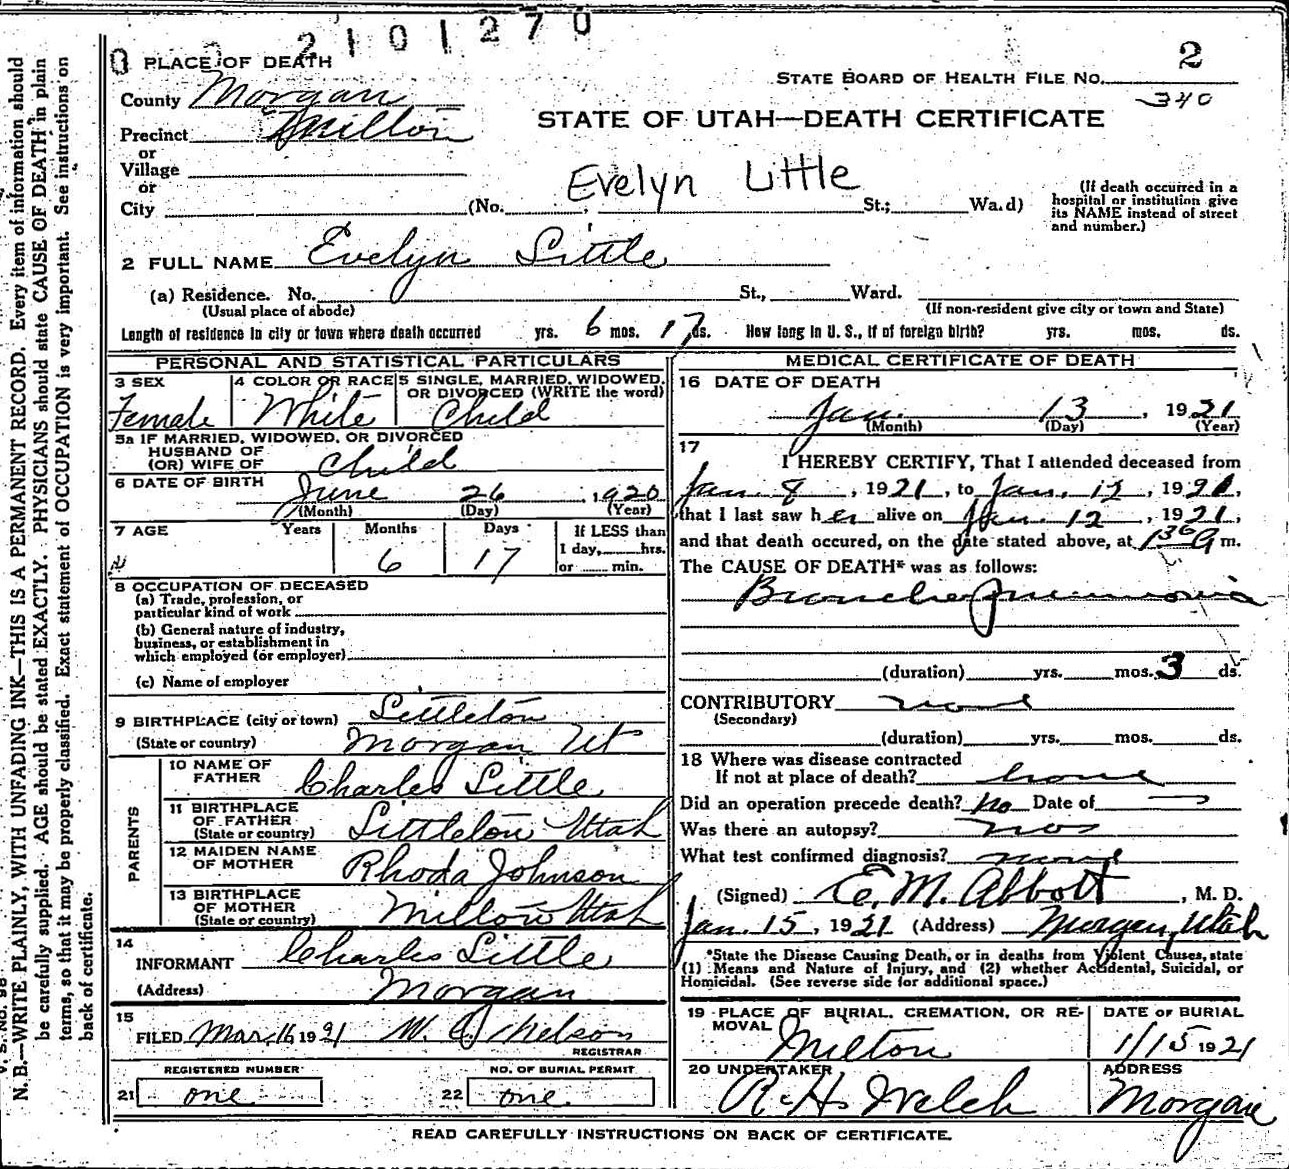 2101270
PLACE OF DEATH
County Morgan
Precinct Milton
or
Village
or
City (No. St.; Wa.d)
STATE BOARD OF HEALTH FILE NO. 2
340
STATE OF UTAH—DEATH CERTIFICATE
Evelyn Little
(If death occurred in a
hospital or institution give
its NAME instead of street
and number.)
2 FULL NAME Evelyn Little
(a) Residence. No. St., Ward.
(Usual place of abode) (If non-resident give city or town and State)
Length of residence in city or town where death occurred yrs. 6 mos. 17 ds. How long in U. S., if of foreign birth? yrs. mos. ds.
PERSONAL AND STATISTICAL PARTICULARS
3 SEX 4 COLOR OR RACE 5 SINGLE, MARRIED, WIDOWED,
OR DIVORCED (WRITE the word)
Female White Child
5a IF MARRIED, WIDOWED, OR DIVORCED
HUSBAND OF
(OR) WIFE OF Child
6 DATE OF BIRTH June 26, 1920
(Month) (Day) (Year)
7 AGE Years Months Days If LESS than
1 day, hrs.
6 17 or min.
8 OCCUPATION OF DECEASED
(a) Trade, profession, or
particular kind of work
(b) General nature of industry,
business, or establishment in
which employed (or employer)
(c) Name of employer
9 BIRTHPLACE (city or town) Littleton
(State or country) Morgan Ut
PARENTS
10 NAME OF
FATHER Charles Little
11 BIRTHPLACE
OF FATHER
(State or country) Littleton Utah
12 MAIDEN NAME
OF MOTHER Rhoda Johnson
13 BIRTHPLACE
OF MOTHER
(State or country) Milton Utah
14
INFORMANT Charles Little
(Address) Morgan
15
FILED Mar. 16 1921 W. Nelson
REGISTRAR
REGISTERED NUMBER NO. OF BURIAL PERMIT
21 one 22 one
MEDICAL CERTIFICATE OF DEATH
16 DATE OF DEATH
Jan. 13, 1921
(Month) (Day) (Year)
17
I HEREBY CERTIFY, That I attended deceased from
Jan. 8, 1921, to Jan. 12, 1921,
that I last saw her alive on Jan. 12, 1921,
and that death occured, on the date stated above, at 1 30 A m.
The CAUSE OF DEATH* was as follows:
Broncho pneumonia
(duration) yrs. mos. 3 ds.
CONTRIBUTORY none
(Secondary)
(duration) yrs. mos. ds.
18 Where was disease contracted
If not at place of death? home
Did an operation precede death? No Date of —
Was there an autopsy? no
What test confirmed diagnosis? none
(Signed) E. M. Abbott, M. D.
Jan. 15, 1921 (Address) Morgan, Utah
*State the Disease Causing Death, or in deaths from Violent Causes, state
(1) Means and Nature of Injury, and (2) whether Accidental, Suicidal, or
Homicidal. (See reverse side for additional space.)
19 PLACE OF BURIAL, CREMATION, OR RE- DATE OF BURIAL
MOVAL Milton 1/15 1921
20 UNDERTAKER ADDRESS
R. H. Welch Morgan
READ CAREFULLY INSTRUCTIONS ON BACK OF CERTIFICATE.
V. S. No. 98
N. B.—WRITE PLAINLY, WITH UNFADING INK—THIS IS A PERMANENT RECORD. Every item of information should
be carefully supplied. AGE should be stated EXACTLY. PHYSICIANS should state CAUSE OF DEATH in plain
terms, so that it may be properly classified. Exact statement of OCCUPATION is very important. See instructions on
back of certificate.